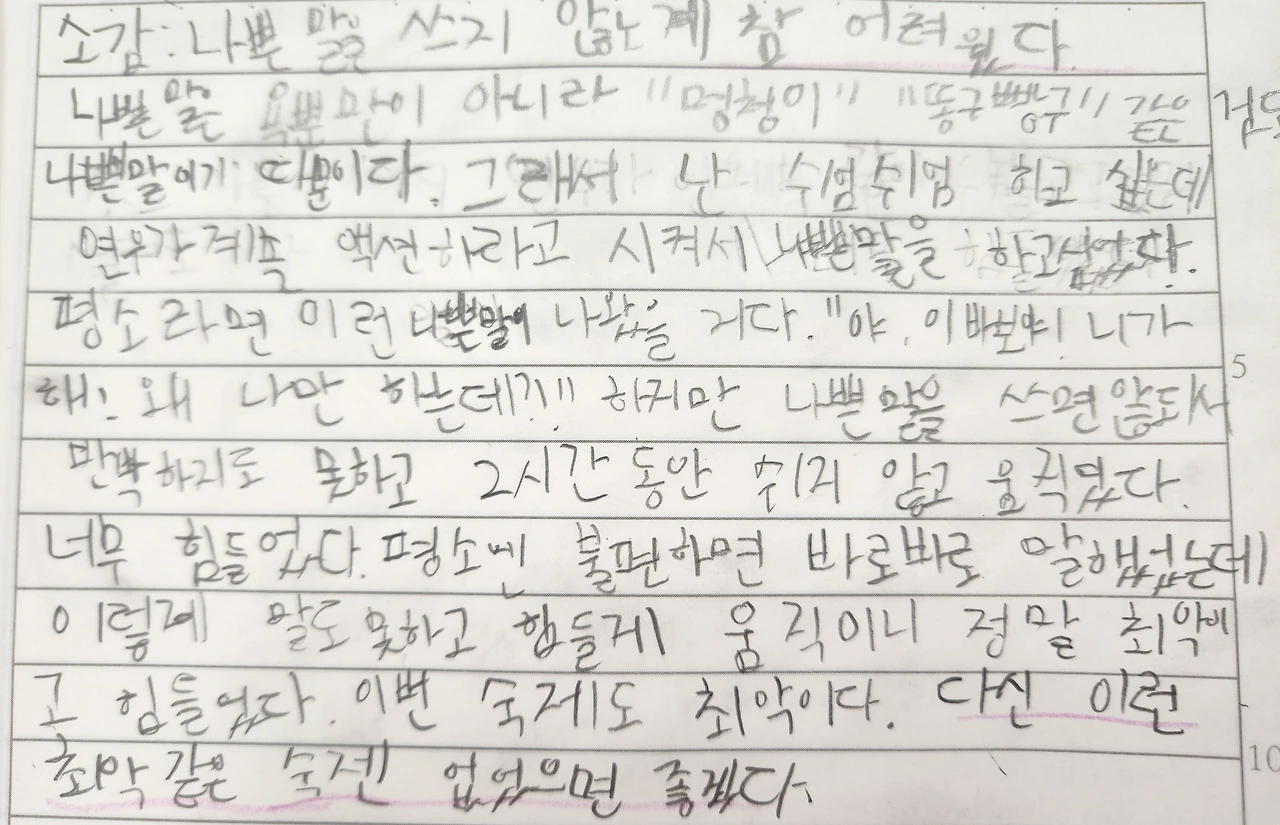 소감: 나쁜 말을 쓰지 않는게 참 어려웠다.
나쁜 말은 욕뿐만이 아니라 "멍청이" "똥구빵구" 같은 검도
나쁜말이기 때문이다. 그래서 난 쉬엄쉬엄 하고 싶은데
연우가 계속 액션하라고 시켜서 나쁜말을 하고싶었다.
평소라면 이런 나쁜말이 나왔을 거다. "야, 이 바보야! 니가
해! 왜 나만 하는데?!" 하지만 나쁜 말을 쓰면 않되서
반박하지도 못하고 2시간 동안 쉬지 않고 움직였다.
너무 힘들었다. 평소엔 불편하면 바로바로 말했었는데
이렇게 말도 못하고 힘들게 움직이니 정말 최악이
고 힘들었다. 이번 숙제도 최악이다. 다신 이런
최악 같은 숙젠 없었으면 좋겠다.
5
10